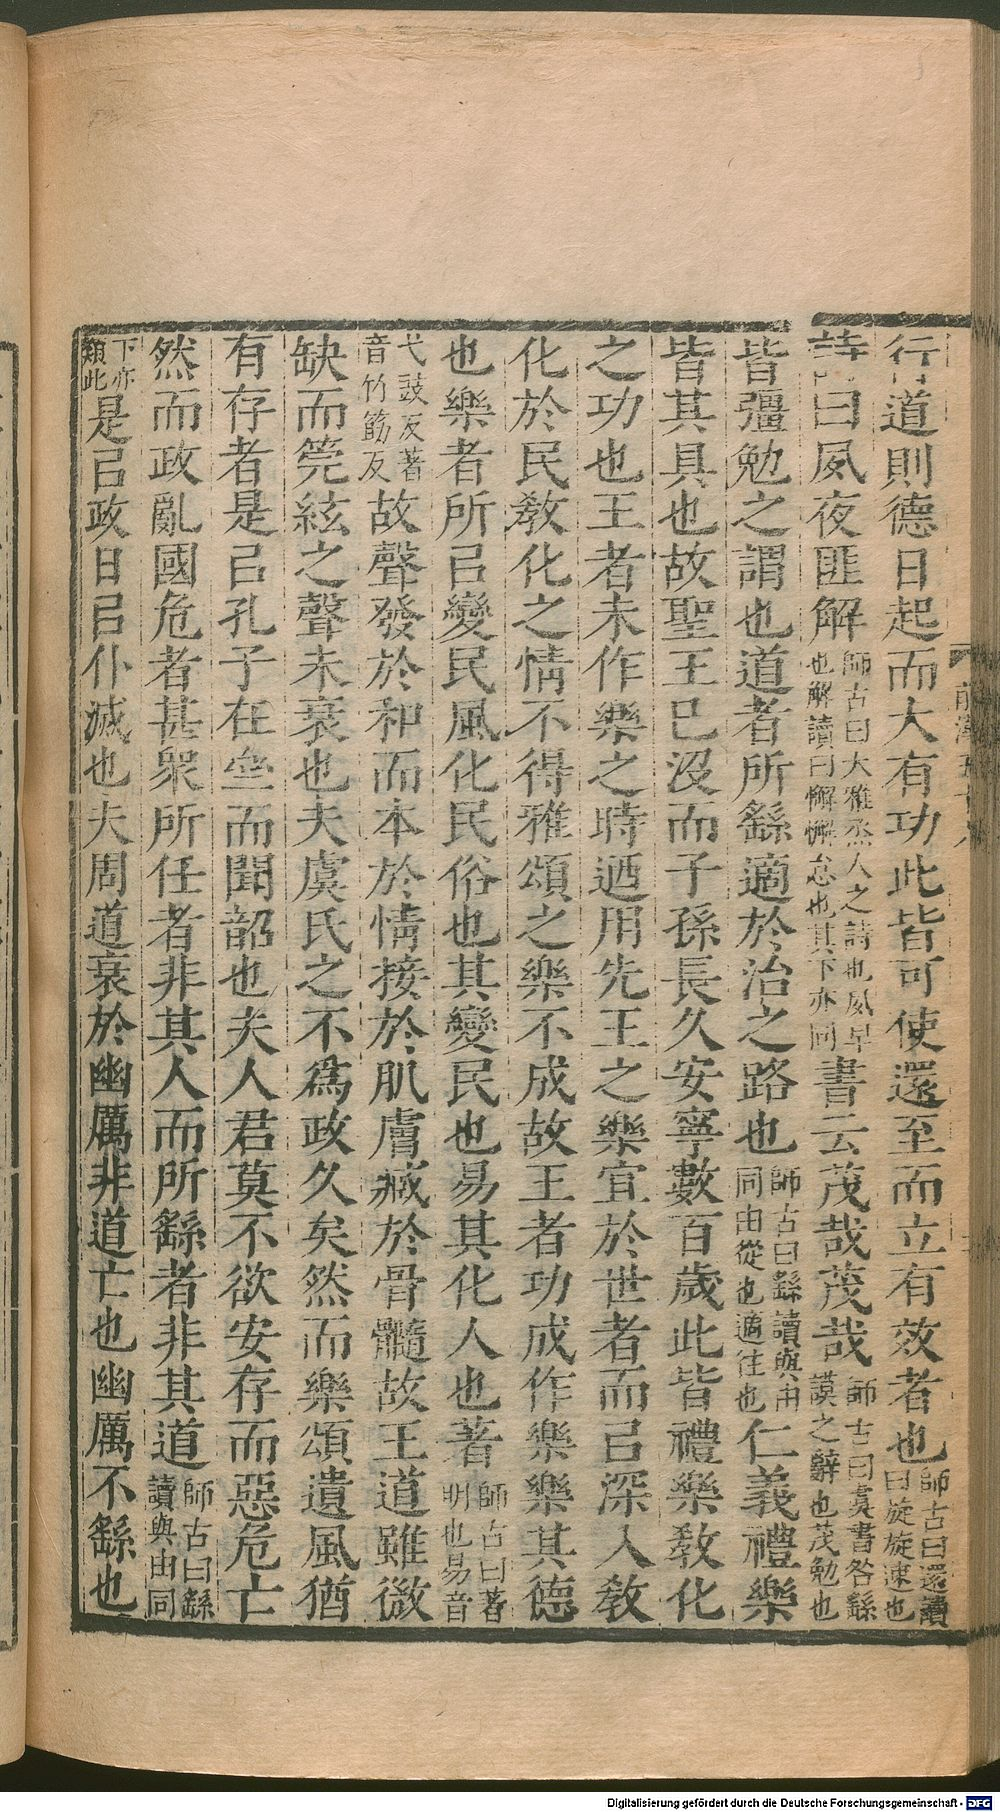 行道則德日起而大有功此皆可使還至而立有效者也師古曰還讀曰旋旋速也
詩曰夙夜匪解師古曰大雅烝人之詩也夙早也解讀曰懈懈怠也其下亦同書云茂哉茂哉師古曰虞書咎繇謨之辭也茂勉也
皆彊勉之謂也道者所繇適於治之路也師古曰繇讀與由同由從也適往也仁義禮樂
皆其具也故聖王已沒而子孫長久安寧數百歲此皆禮樂敎化
之功也王者未作樂之時迺用先王之樂宜於世者而㠯深入敎
化於民敎化之情不得雅頌之樂不成故王者功成作樂樂其德
也樂者所㠯變民風化民俗也其變民也易其化人也著師古曰著明也易音
弋豉反著音竹筯反故聲發於和而本於情接於肌膚臧於骨髓故王道雖微
缺而筦絃之聲未衰也夫虞氏之不爲政久矣然而樂頌遺風猶
有存者是㠯孔子在齊而聞韶也夫人君莫不欲安存而惡危亡
然而政亂國危者甚衆所任者非其人而所繇者非其道師古曰繇讀與由同
下亦類此是㠯政日㠯仆滅也夫周道衰於幽厲非道亡也幽厲不繇也
Digitalisierung gefördert durch die Deutsche Forschungsgemeinschaft - DFG